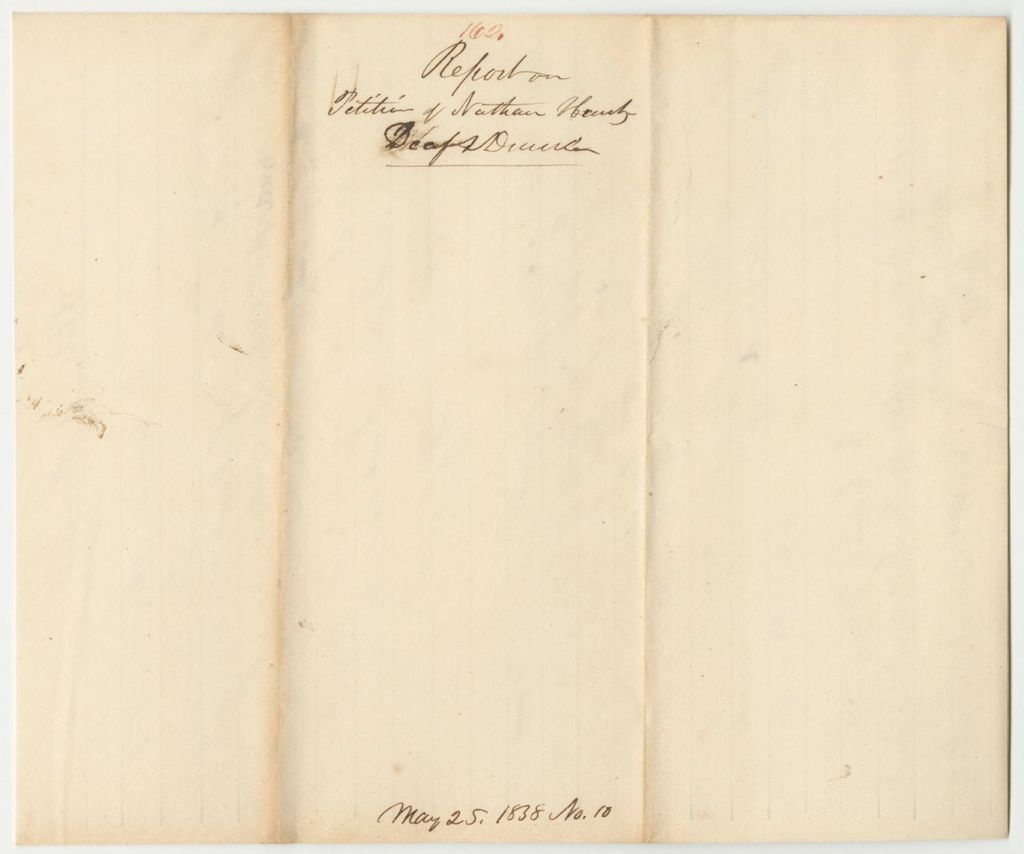 162.
Report on
Petition of Nathan
Deaf & Dumb
May 25. 1838 No. 10